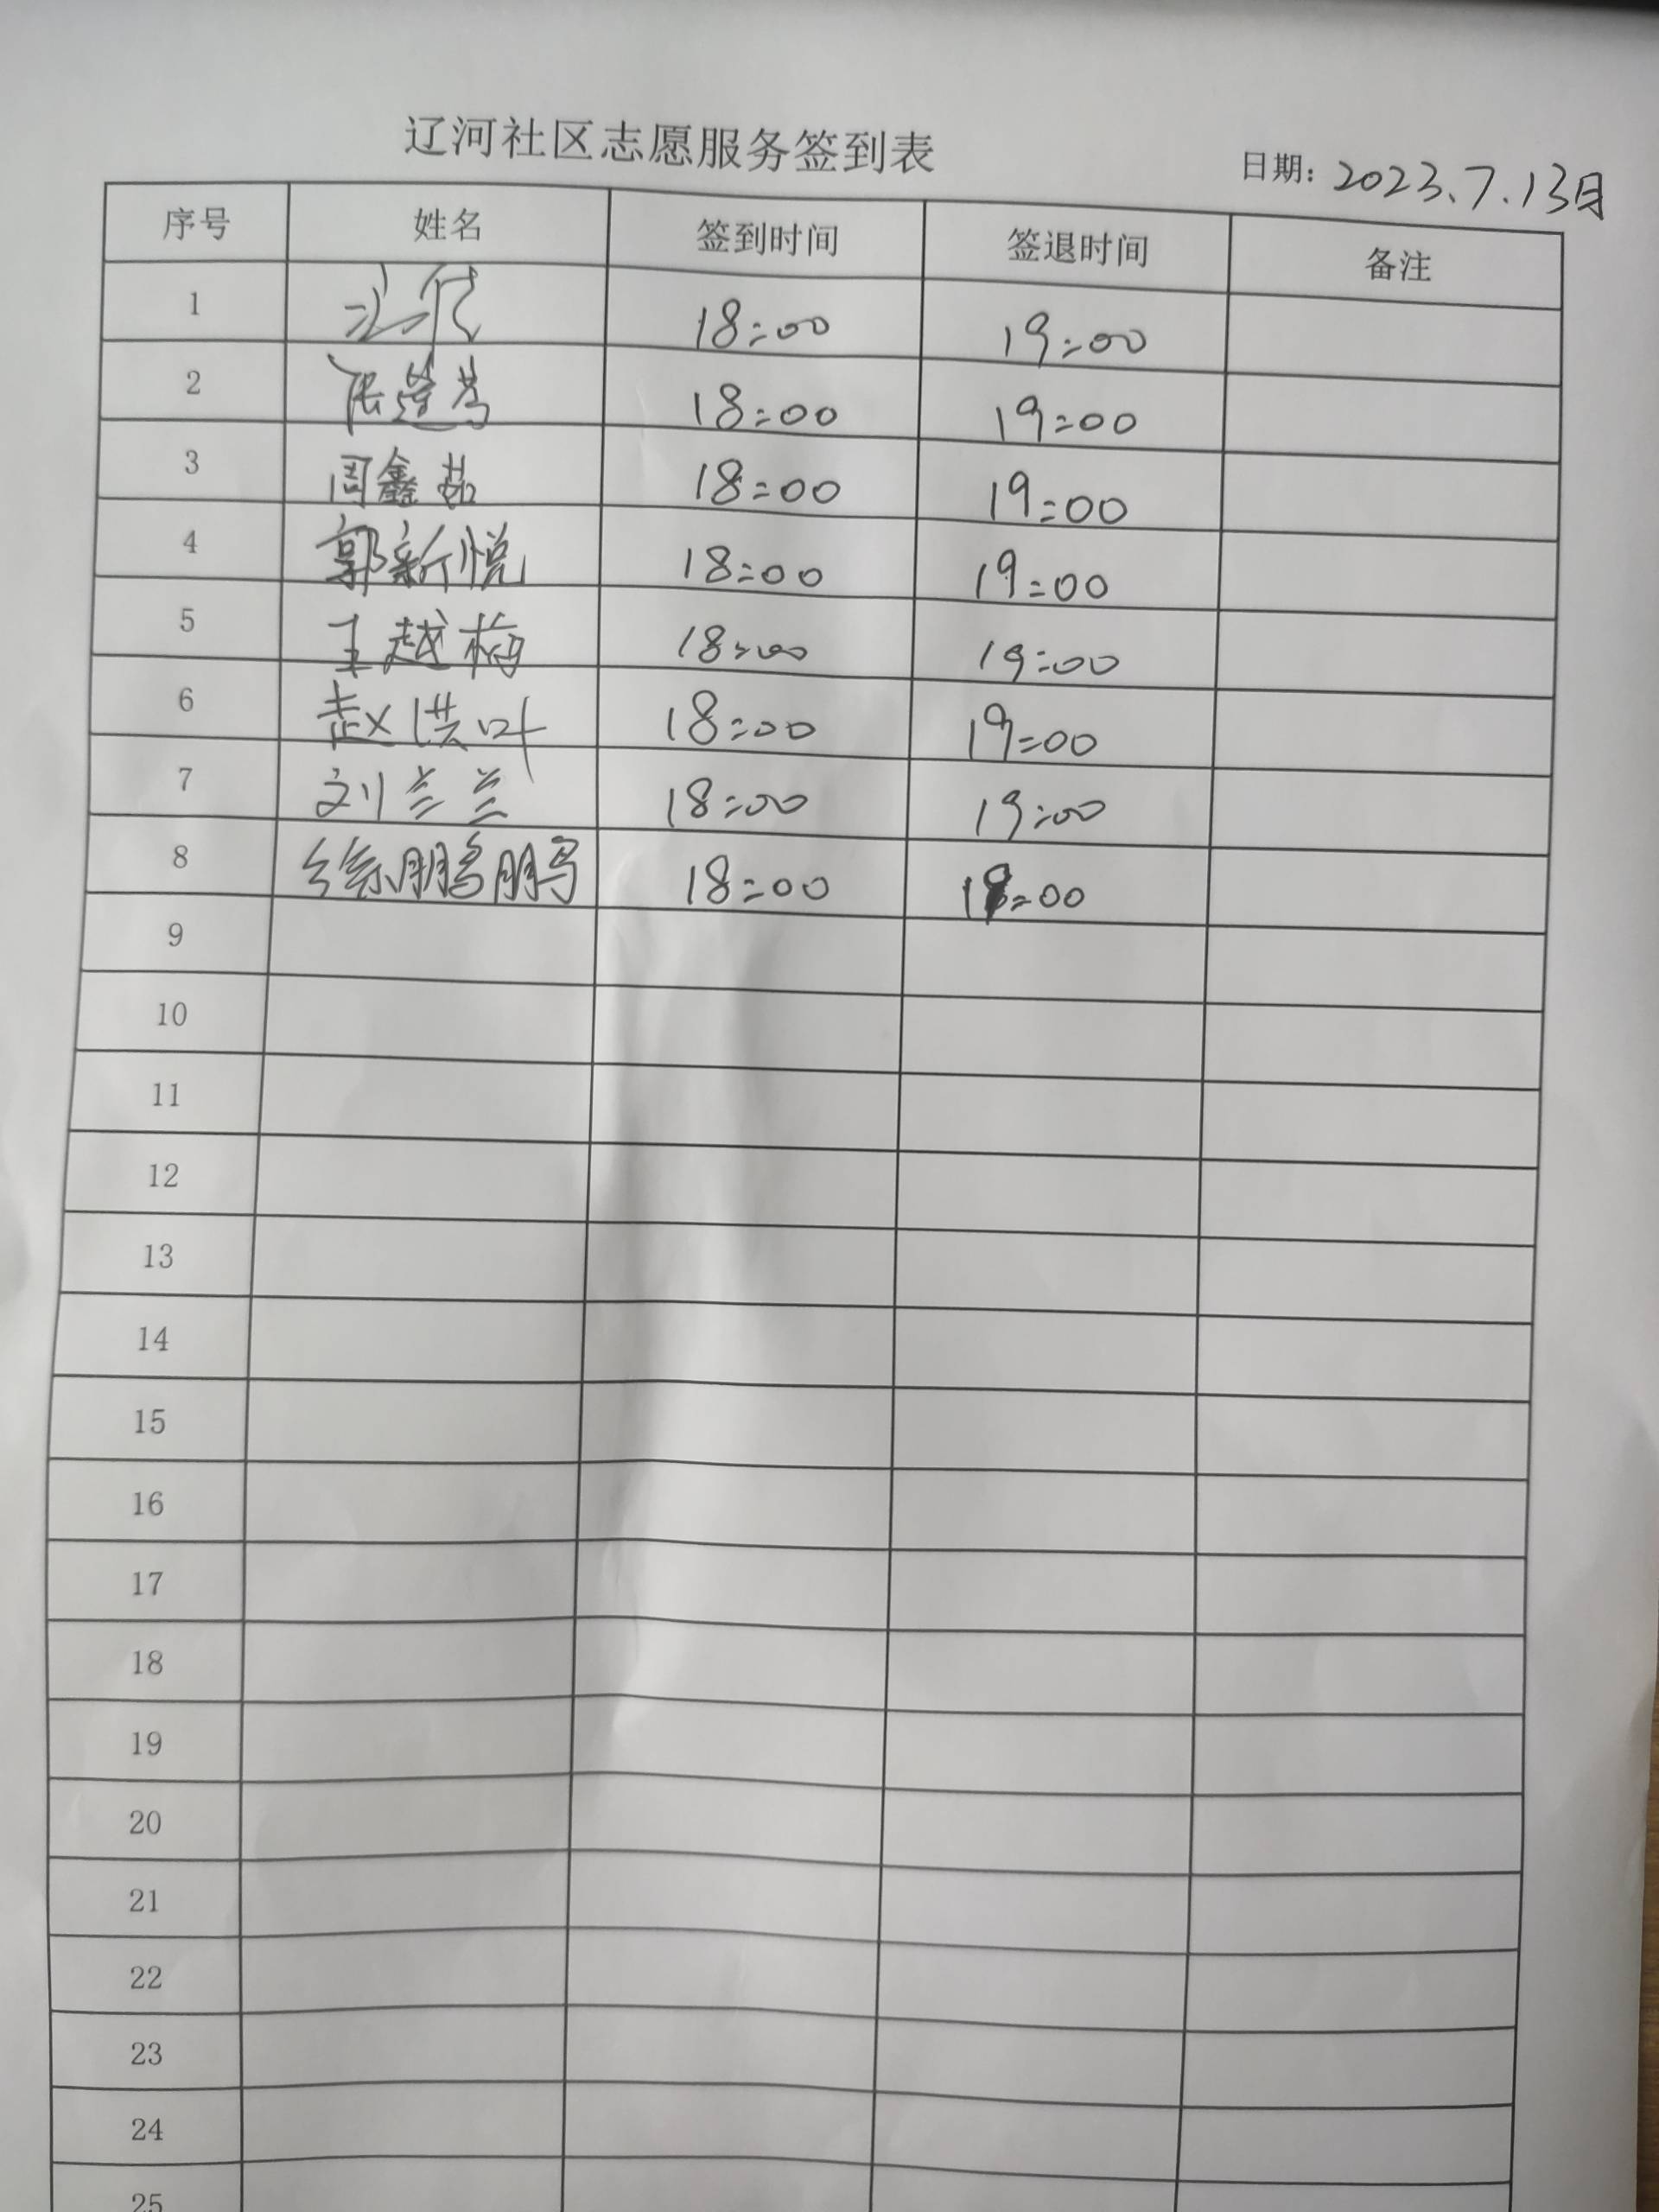 辽河社区志愿服务签到表
日期: 2023.7.13日
序号 姓名 签到时间 签退时间 备注
1 18:00 19:00
2 18:00 19:00
3 周鑫茹 18:00 19:00
4 郭新悦 18:00 19:00
5 王越梅 18:00 19:00
6 赵洪叶 18:00 19:00
7 刘兰兰 18:00 19:00
8 徐鹏鹏 18:00 19:00
9
10
11
12
13
14
15
16
17
18
19
20
21
22
23
24
25